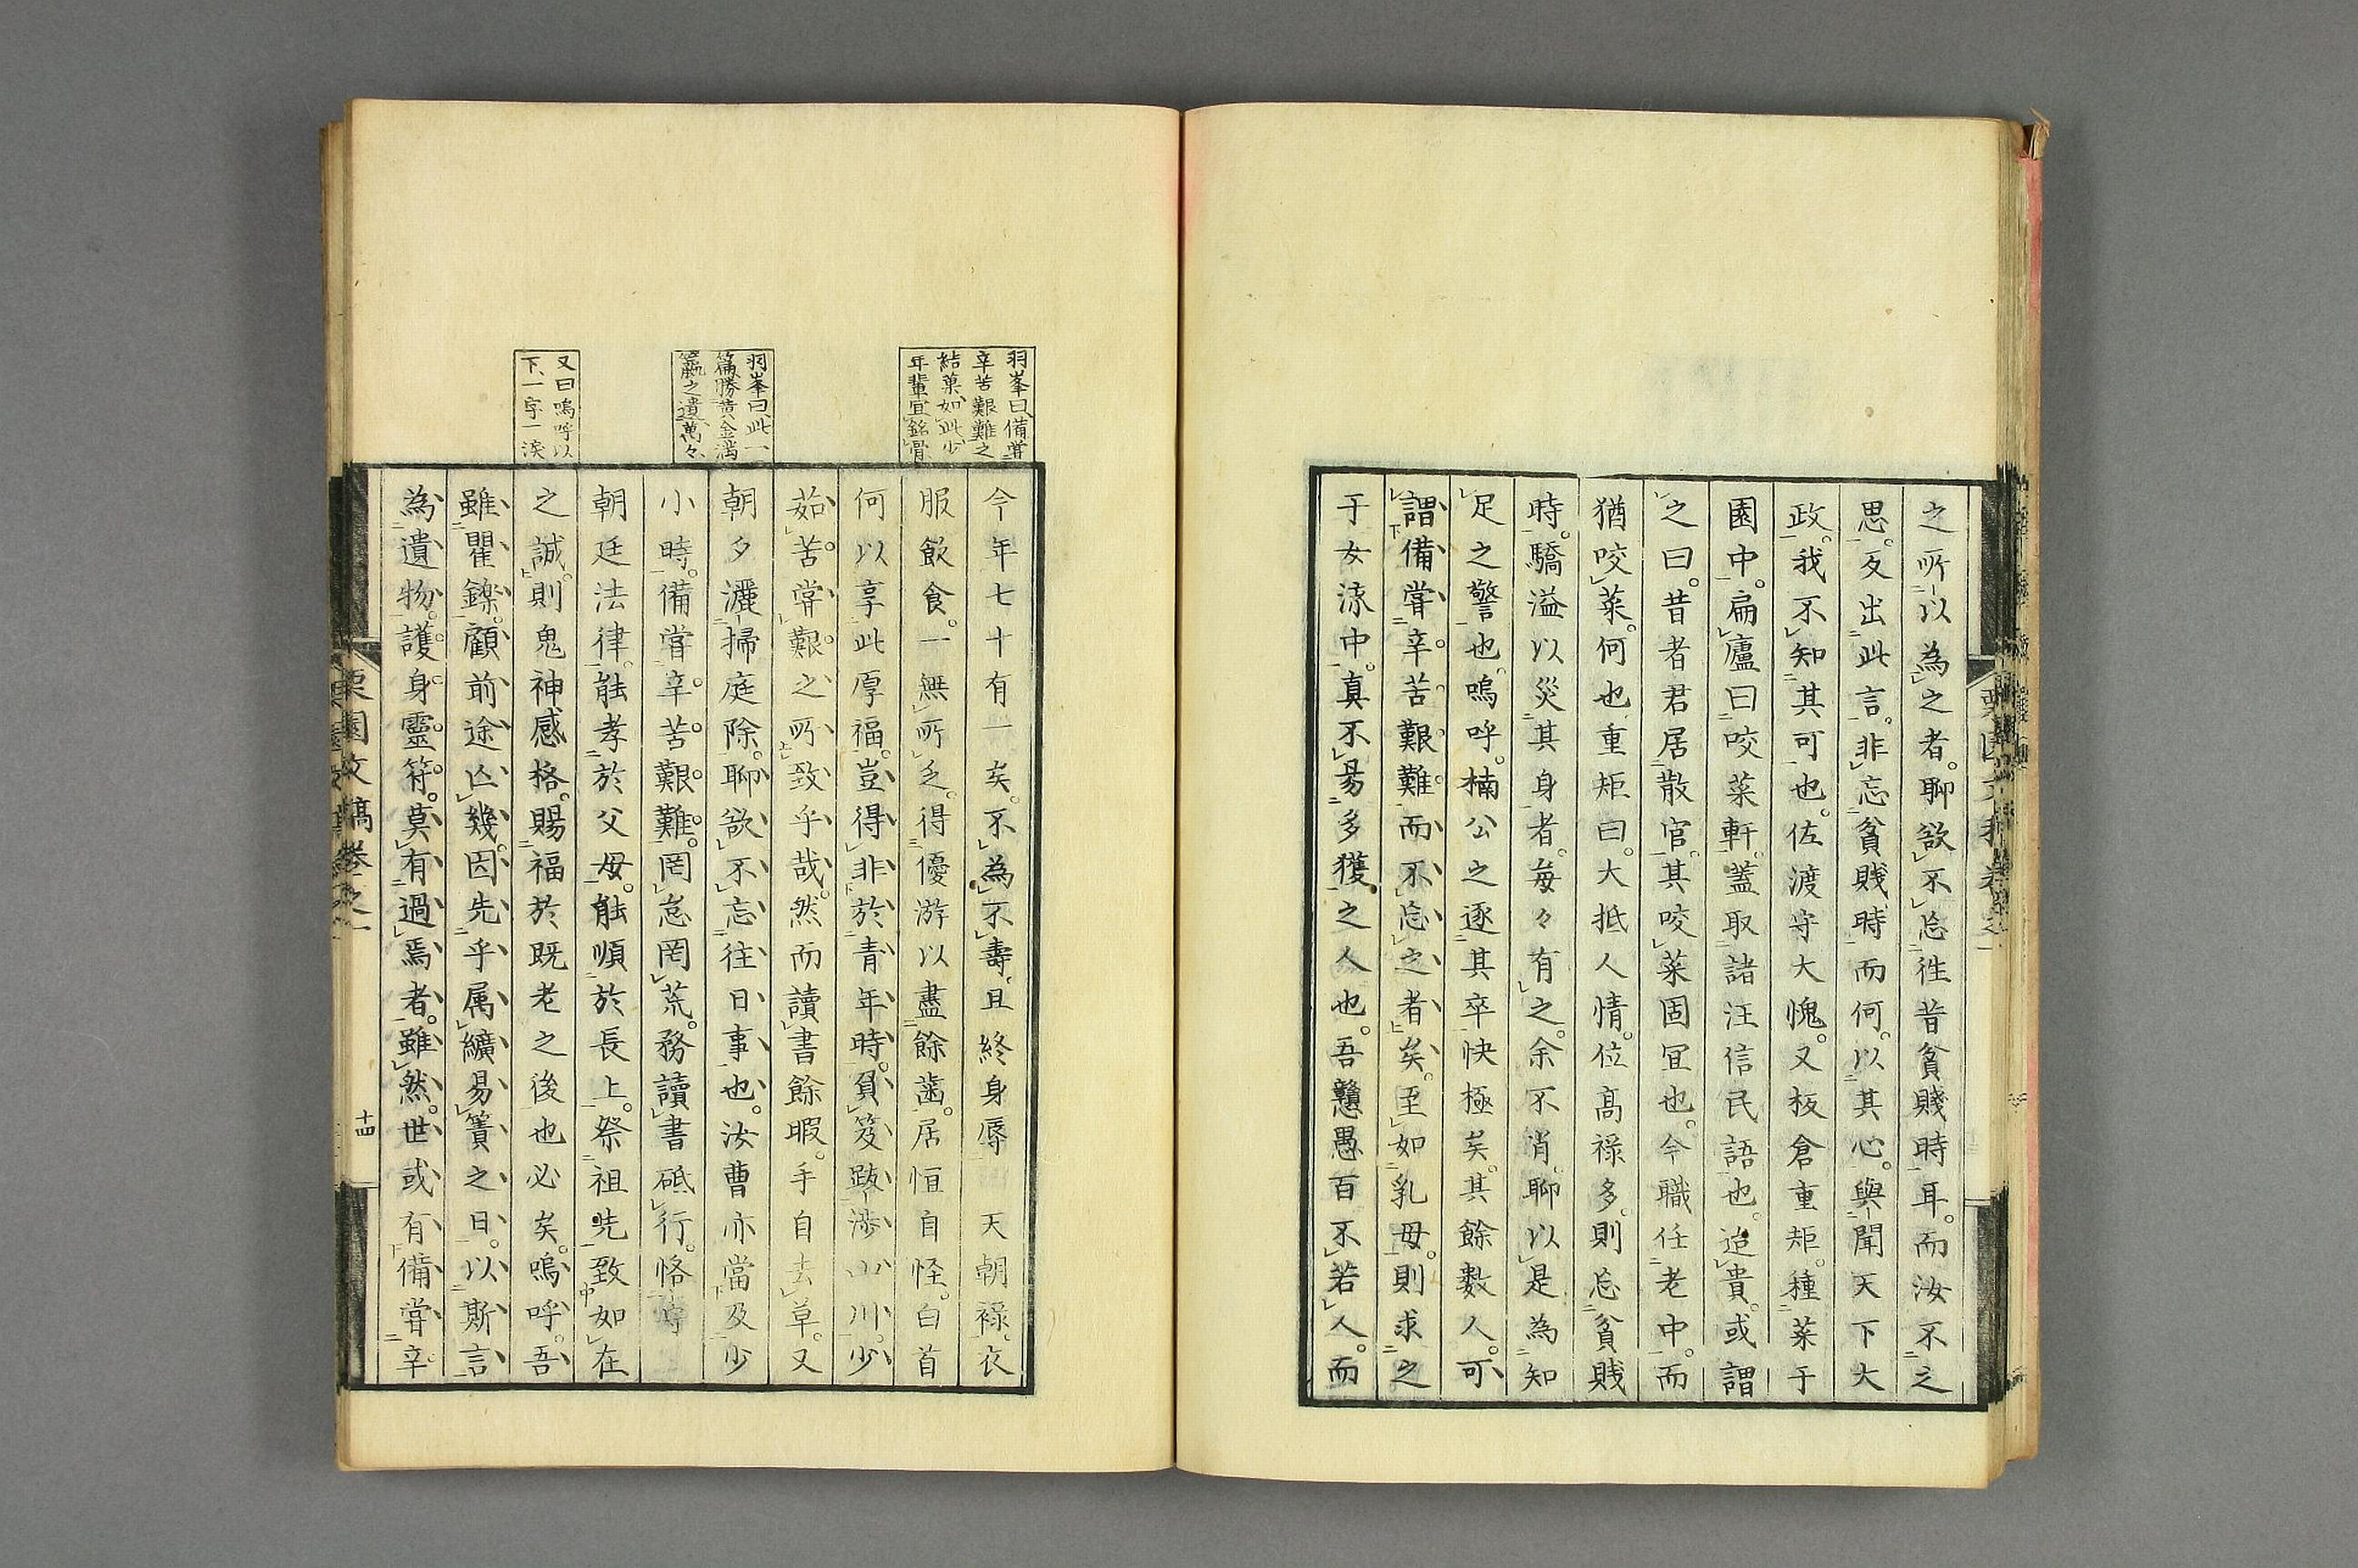 之所以為之者。聊欲不忘徃昔貧賤時耳。而汝不之
思。反出此言。非忘貧賤時而何。以其心。與聞天下大
政。我不知其可也。佐渡守大愧。又板倉重矩。種菜于
園中。扁廬曰咬菜軒。蓋取諸汪信民語也。迨貴。或謂
之曰。昔者君居散官。其咬菜固宜也。今職任老中。而
猶咬菜。何也。重矩曰。大抵人情。位高禄多。則忘貧賤
時。驕溢以災其身者。每々有之。余不肖聊以是為知
足之警也。嗚呼。楠公之逐其卒快極矣。其餘數人。可
謂備嘗辛苦艱難而不忘之者矣。至如乳母。則求之
于女流中。真不易多獲之人也。吾戇愚百不若人。而
今年七十有一矣。不為不壽。且終身辱　天朝禄。衣
服飲食。一無所乏。得優游以盡餘齒。居恒自怪。白首
何以享此厚福。豈得非於青年時。負笈跋渉山川。少
茹苦。嘗艱之所致乎哉。然而讀書餘暇。手自去草。又
朝夕灑掃庭除。聊欲不忘往日事也。汝曹亦當及少
小時。備嘗辛苦艱難。罔怠罔荒。務讀書砥行。恪遵
朝廷法律。能孝於父母。能順於長上。祭祖先致如在
之誠。則鬼神感格。賜福於既老之後也必矣。嗚呼。吾
雖矍鑠。顧前途亾幾。因先乎属纊易簀之日。以斯言
為遺物。護身靈符。莫有過焉者。雖然。世或有備嘗辛
羽峯曰、備嘗
辛苦艱難之
結菓、如此、少
年輩宜銘骨
羽峯曰、此一
篇勝黄金満
籯之遺萬々、
又曰嗚呼以
下、一字一淚
栗園文稿卷之一
十四